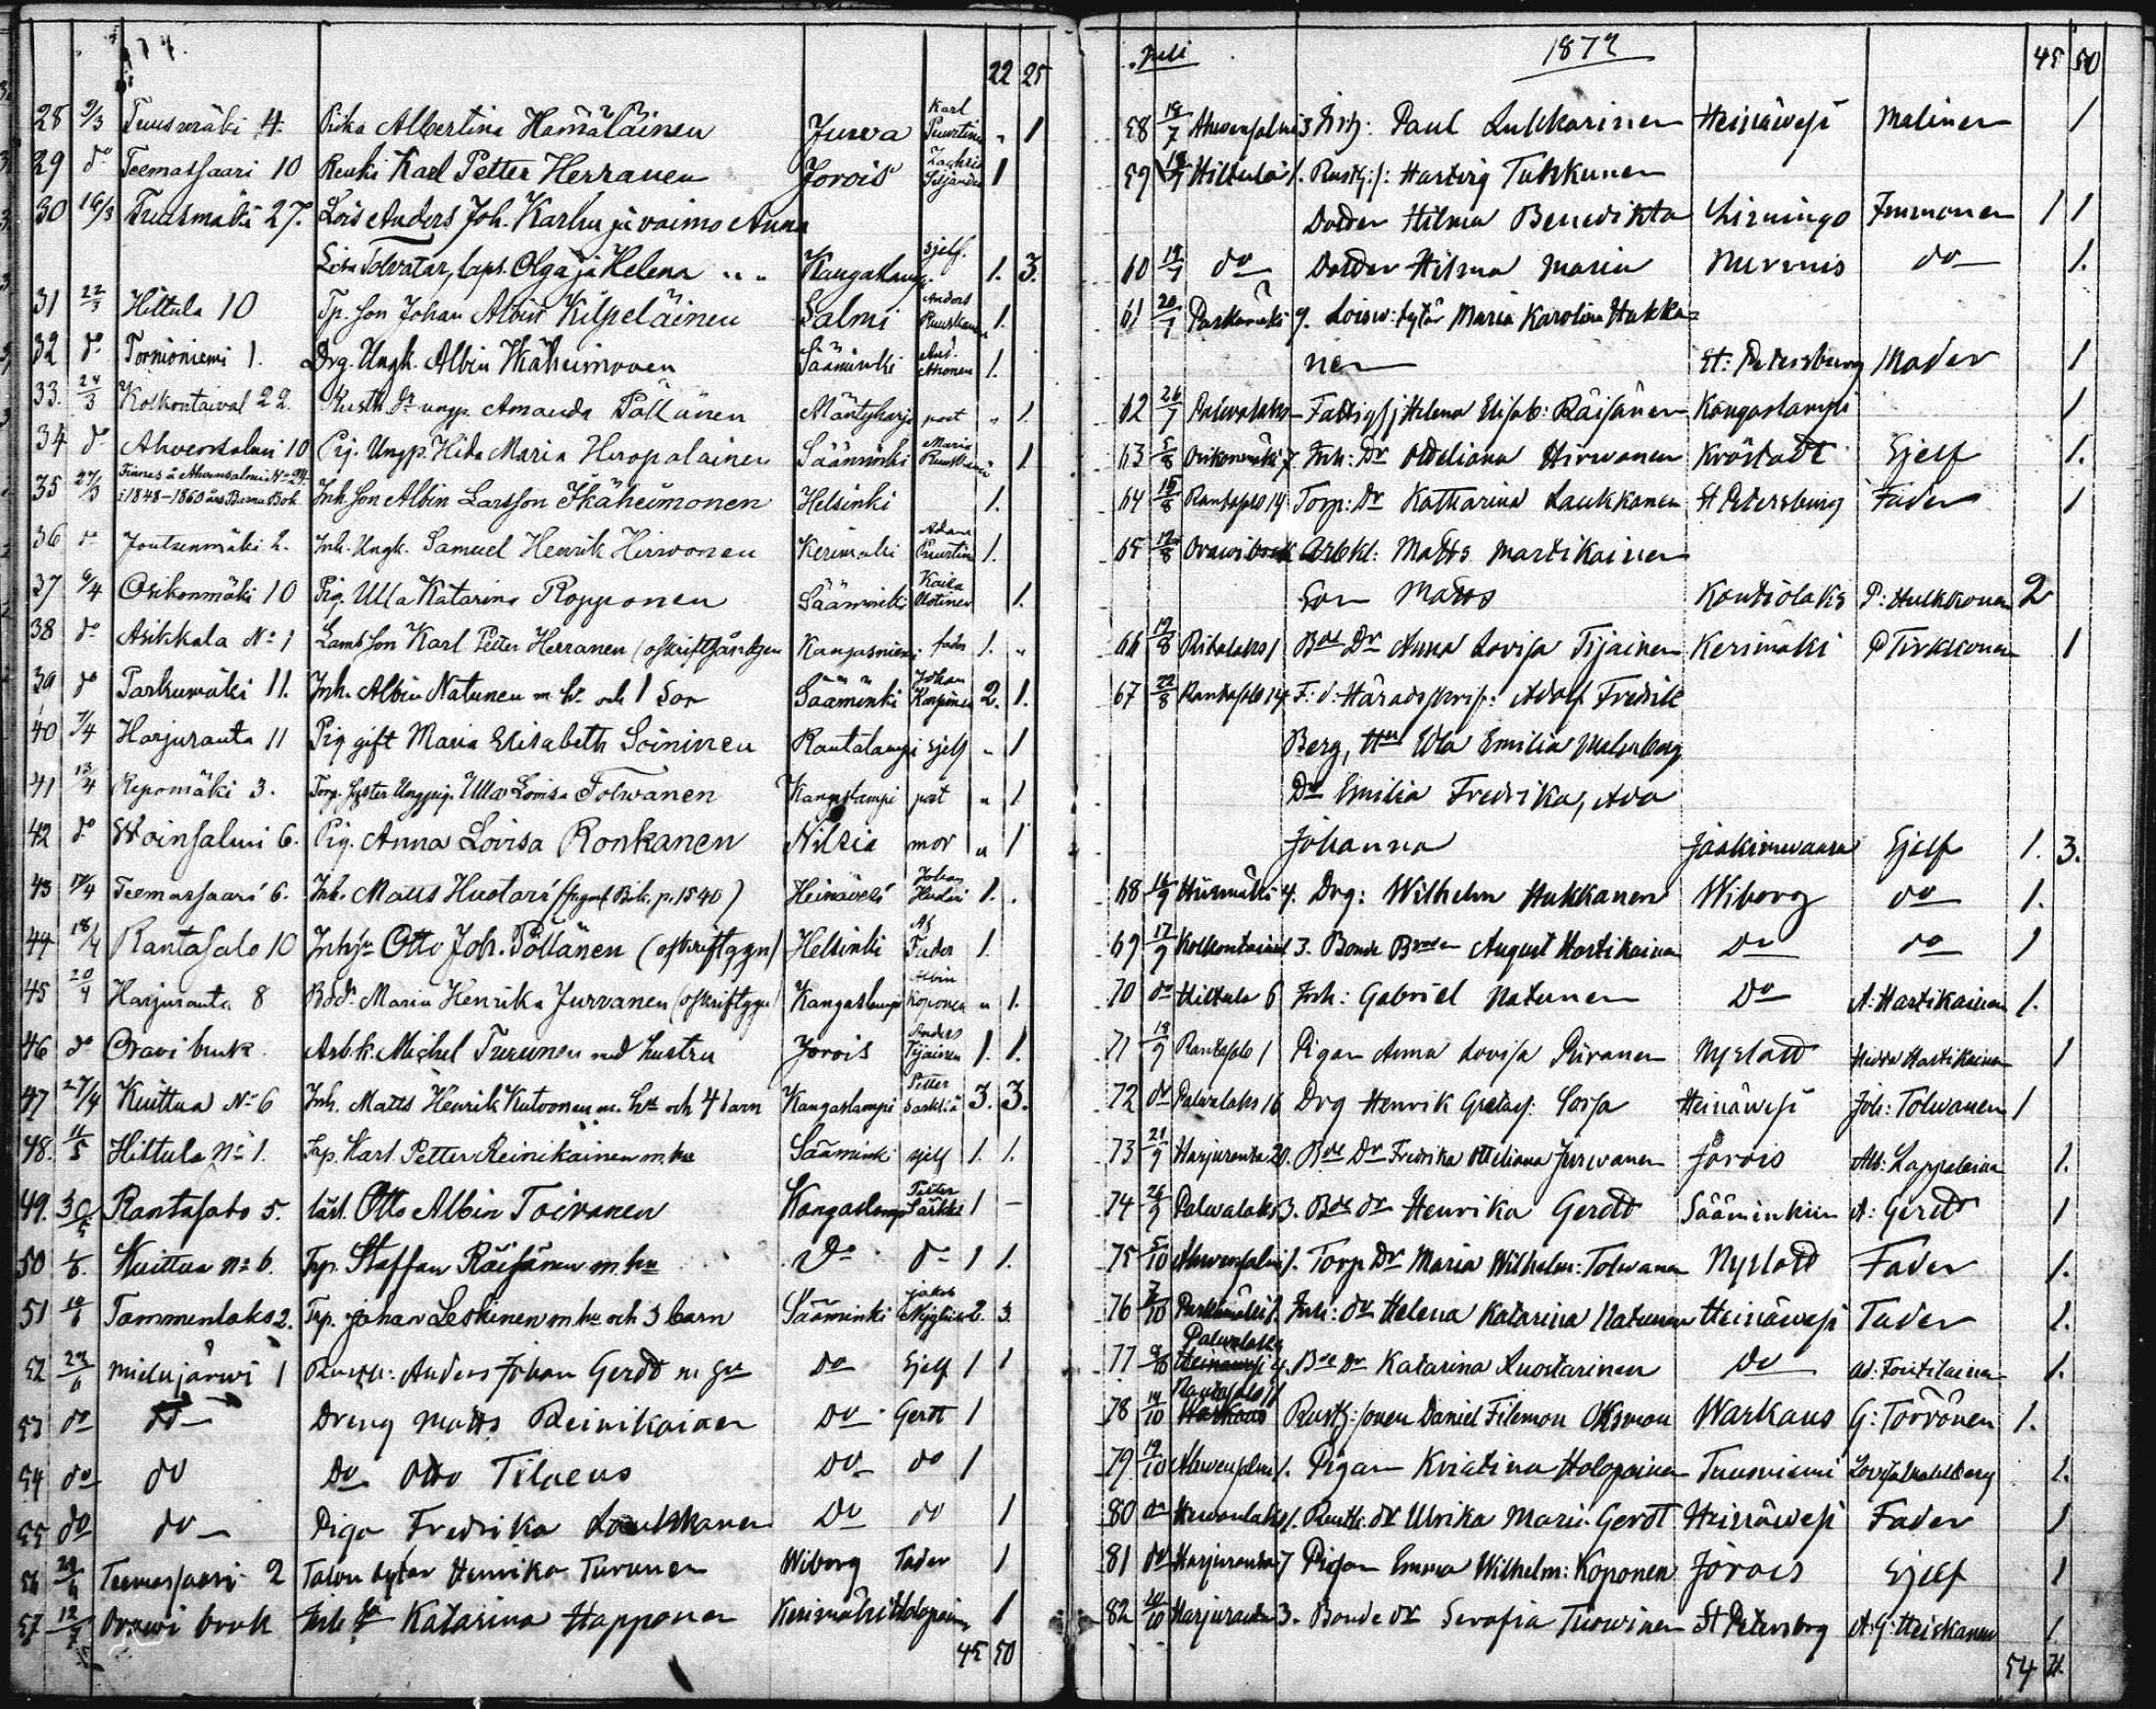 22 25
28 9/3 Tuusmäki 4. Piika Albertina Hämäläinen Jurva Karl Puurtinen " 1
29 do Teemassaari 10 Renki Karl Petter Herranen Jorois Zachris Siljander 1
30 16/3 Tuusmäki 27. Lois Anders Joh. Karhu ja vaimo Anna
Lisa Tolvatar, laps. Olga ja Helena " " Kangaslampi sjelf. 1. 3.
31 22/3 Hiltula 10 Tp. son Johan Albin Kilpeläinen Salmi Anders Ruuskanen 1.
32 do Tornioniemi 1. Drg. Ungk. Albin Ikäheimonen Sääminki And. 1.
33. 24/3 Kolkontaival 22. Rusth. Dr ungp. Amanda Pöllänen Mäntyharju post " 1.
34 do Ahvensalmi 10 Pig. Ungp. Hida Maria Heropalainen Sääminki Maria 1
35 27/3 Finnes å Ahvensalmi No 24. i 1848-1860 års Barna Bok Inh. Son Albin Larsson Ikäheimonen Helsinki 1.
36 do Joutsenmäki 2. Inh. Ungk. Samuel Henrik Hirvonen Kerimäki Adam Puurtinen 1.
37 6/4 Osikonmäki 10 Pig. Ulla Katarina Ropponen Sääminki Kaisa 1.
38 do Asikkala No 1 Lamb son Karl Petter Herranen Kangasniemi fader 1. "
39 do Parkumäki 11. Inh. Albin Natunen m. h. och 1 Son Sääminki Johan 2. 1.
40 7/4 Harjuranta 11 Pig gift Maria Elisabeth Soininen Rantalampi sjelf " 1
41 13/4 Repomäki 3. Torp. syster Ungpig. Ulla Lovisa Tolwanen Kangaslampi post " 1
42 do Woinsalmi 6. Pig. Anna Lovisa Ronkanen Nilsiä mor " 1
43 17/4 Teemassaari 6. Inh. Matts Huotari Bok. p. 1540) Heinävesi Johan 1. .
44 18/4 Rantasalo 10 Otto Joh. Pöllänen Helsinki Af Fader 1.
45 20/4 Harjuranta 8 Bd dr Maria Henrika Jurvanen Kangaslampi Albin Koponen " 1.
46 do Oravi bruk Arb.k. Michel Turunen med hustru Jorois Anders Tijainen 1. 1.
47 27/4 Kuittua No 6 Inh. Matts Henrik Kutvonen m. hu och 4 barn Kangaslampi Petter 3. 3.
48. 11/5 Hiltula No 1. Trp. Karl Petter Reinikainen m. hu Sääminki sjelf 1. 1.
49. 30/5 Rantasalo 5. Otto Albin Toivanen Kangaslampi Petter Särkkä 1 -
50 1/6. Kuittua No 6. Trp. Staffan Räisänen m. hu Do do 1 1.
51 10/6 Tammenlaks 2. Trp. Johan Leskinen m. hu och 3 barn Sääminki Jakob 2. 3.
52 29/6 Mielujärwi 1 Rusth: Anders Johan Gerdt m. Do Sjelf 1 1
53 do do Dreng Matts Reinikainen Do Gerdt 1
54 do do Do Otto Tilaeus Do do 1
55 do do Piga Fredrika Laukkanen Do do 1
56 29/6 Teemassaari 2 Talon tytär Henrika Turunen Wiborg Fader 1
57 12/7 Orawi bruk Inh dr Katarina Happonen Kerimäki Holopain 1
45 50
Juli 1872 45 50
58 18/7 Ahwensalmi 3 Inh: Paul Lukkarinen Heinäwesi Malinen 1
59 19/7 Hiltula 1. Rusth: Hartvig Tukkunen
Dotter Hilma Benedikta Immonen 1 1
60 19/7 do Dotter Hilma Maria Nurmis do 1.
61 20/7 9. Loisw: tytär Maria Karolina Hukka=
nen St: Petersburg Moder 1
62 26/7 Palwalaks Fattighj Helena Elisab: Räisänen Kangaslampi 1
63 5/8 Osikonmäki 7 Inh: Dr Otteliana Hirwonen Krostadt Sjelf 1.
64 10/8 Rantasalo 14 Torp: Dr Katharina Laukkanen St Petersburg Fader 1
65 12/8 Orawi bruk Arbkl: Matts Martikainen
Son Matts Kontiolaks P: Hulkkonen 2
66 19/8 1 Bde Dr Anna Lovisa Tijainen Kerimäki P Tirkkonen 1
67 22/8 Rantasalo 14 F: d: Häradsskrif: Adolf Fredrik
Berg, Hu Ewa Emilia Malmberg
Dr Emilia Fredrika, Ada
Johanna Jaakimwaara Sjelf 1. 3.
68 16/9 4. Drg: Wilhelm Hukkanen Wiborg do 1.
69 17/9 Kolkontaival 3. Bonde August Hartikainen Do do 1
70 do Hiltula 6 Inh: Gabriel Natunen Do A: Hartikainen 1.
71 18/9 Rantasalo 1 Pigan Anna Lovisa Piiranen Nyslott Hartikainen 1
72 do Palwalaks 16 Drg Henrik Gustaf: Sorsa Heinäwesi Joh: Tolwanen 1
73 21/9 Harjuranta 20. Bde Dr Fredrika Otteliana Jurwanen Jorois Alb: Lappalainen 1.
74 26/9 Palwalaks 3. Bde dr Henrika Gerdt Sääminkin A: Gerdt 1
75 5/10 Ahwensalmi 1. Torp Dr Maria Wilhelm: Tolwanen Nyslott Fader 1.
76 7/10 Parkumäki 1. Inh: dr Helena Katarina Natunen Heinäwesi Fader 1.
77 9/10 Palwalaks 4. Bde Dr Katarina Luostarinen Do 1.
78 14/10 Rantasalo 11 Rusth: sonen Daniel Filemon Oksman Warkaus G: Törrönen 1.
79 19/10 Ahwensalmi 1. Pigan Kristina Holopainen Tuusniemi 1.
80 do 1. Rusth. dr Ulrika Mari: Gerdt Heinäwesi Fader 1
81 do Harjuranta 7 Pigan Emma Wilhelm: Koponen Jorois Sjelf 1
82 20/10 Harjuranta 3. Bonde dr Serafia Tuowinen St Petersbrg A: G: Heiskanen 1.
54 71.